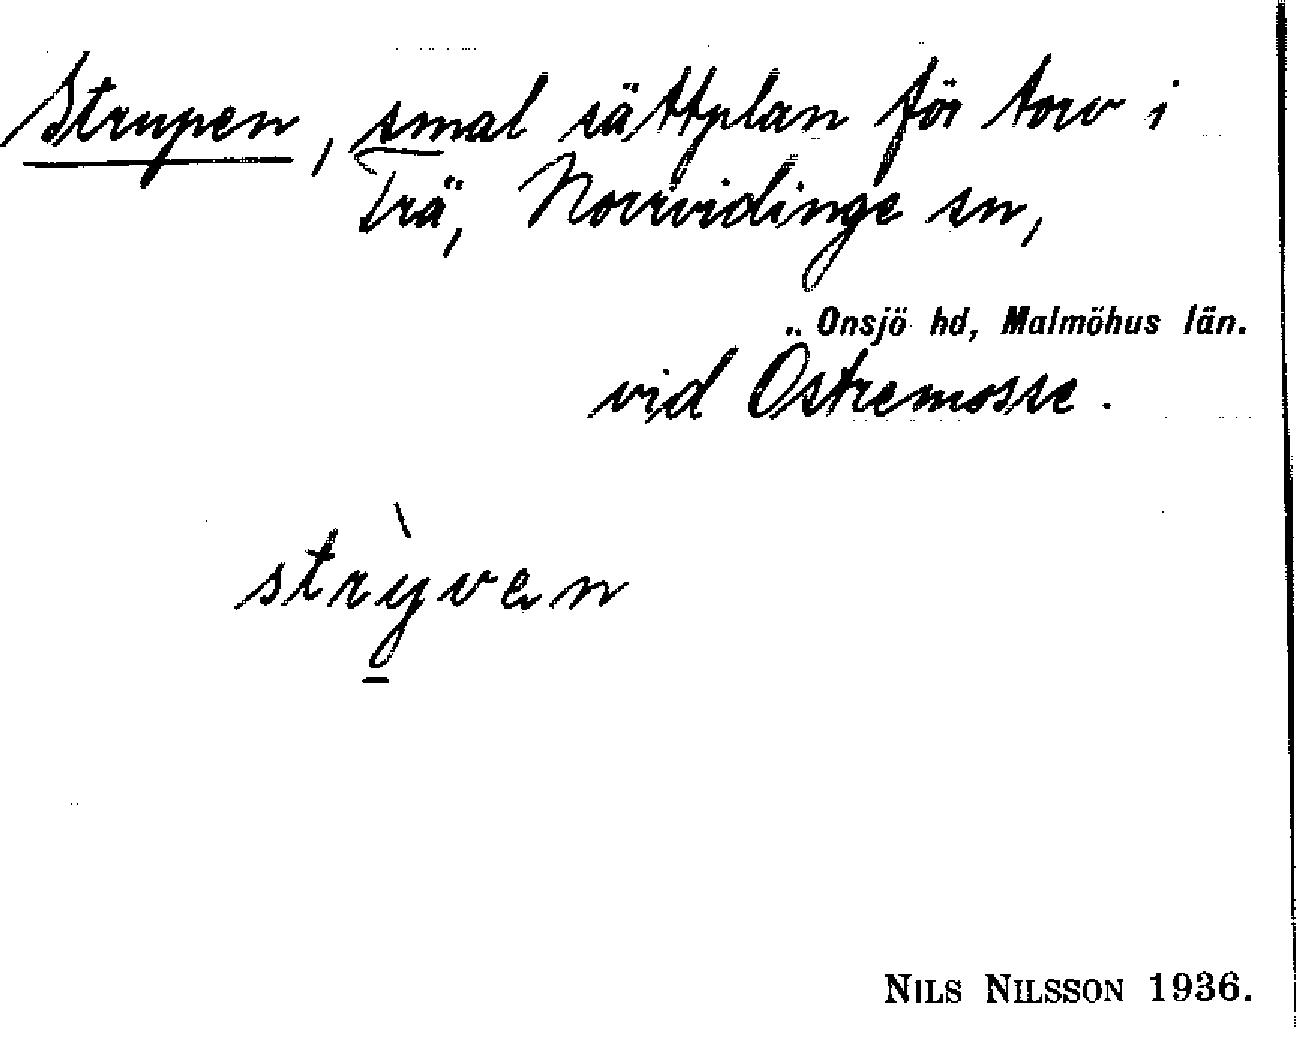 Strupen, smal sättplan för torv i
Trä, Norrvidinge sn,
„ Onsjö hd, Malmöhus län.
vid Ostremosse.
strỳven
NILS NILSSON 1936.